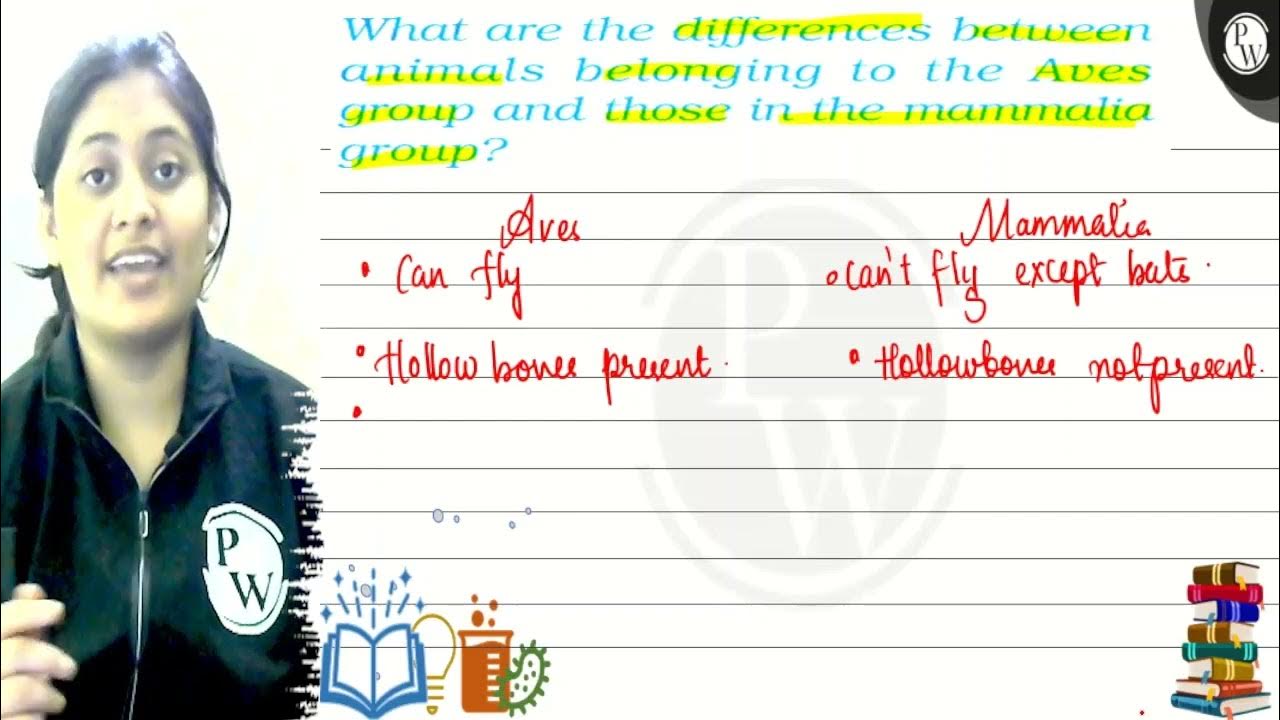 What are the differences between
animals belonging to the Aves
group and those in the mammalia
group?
PW
Aves
Mammalia
• Can fly
• can't fly except bats.
• Hollow bones present.
• Hollow bones not present.
•
PW
PW